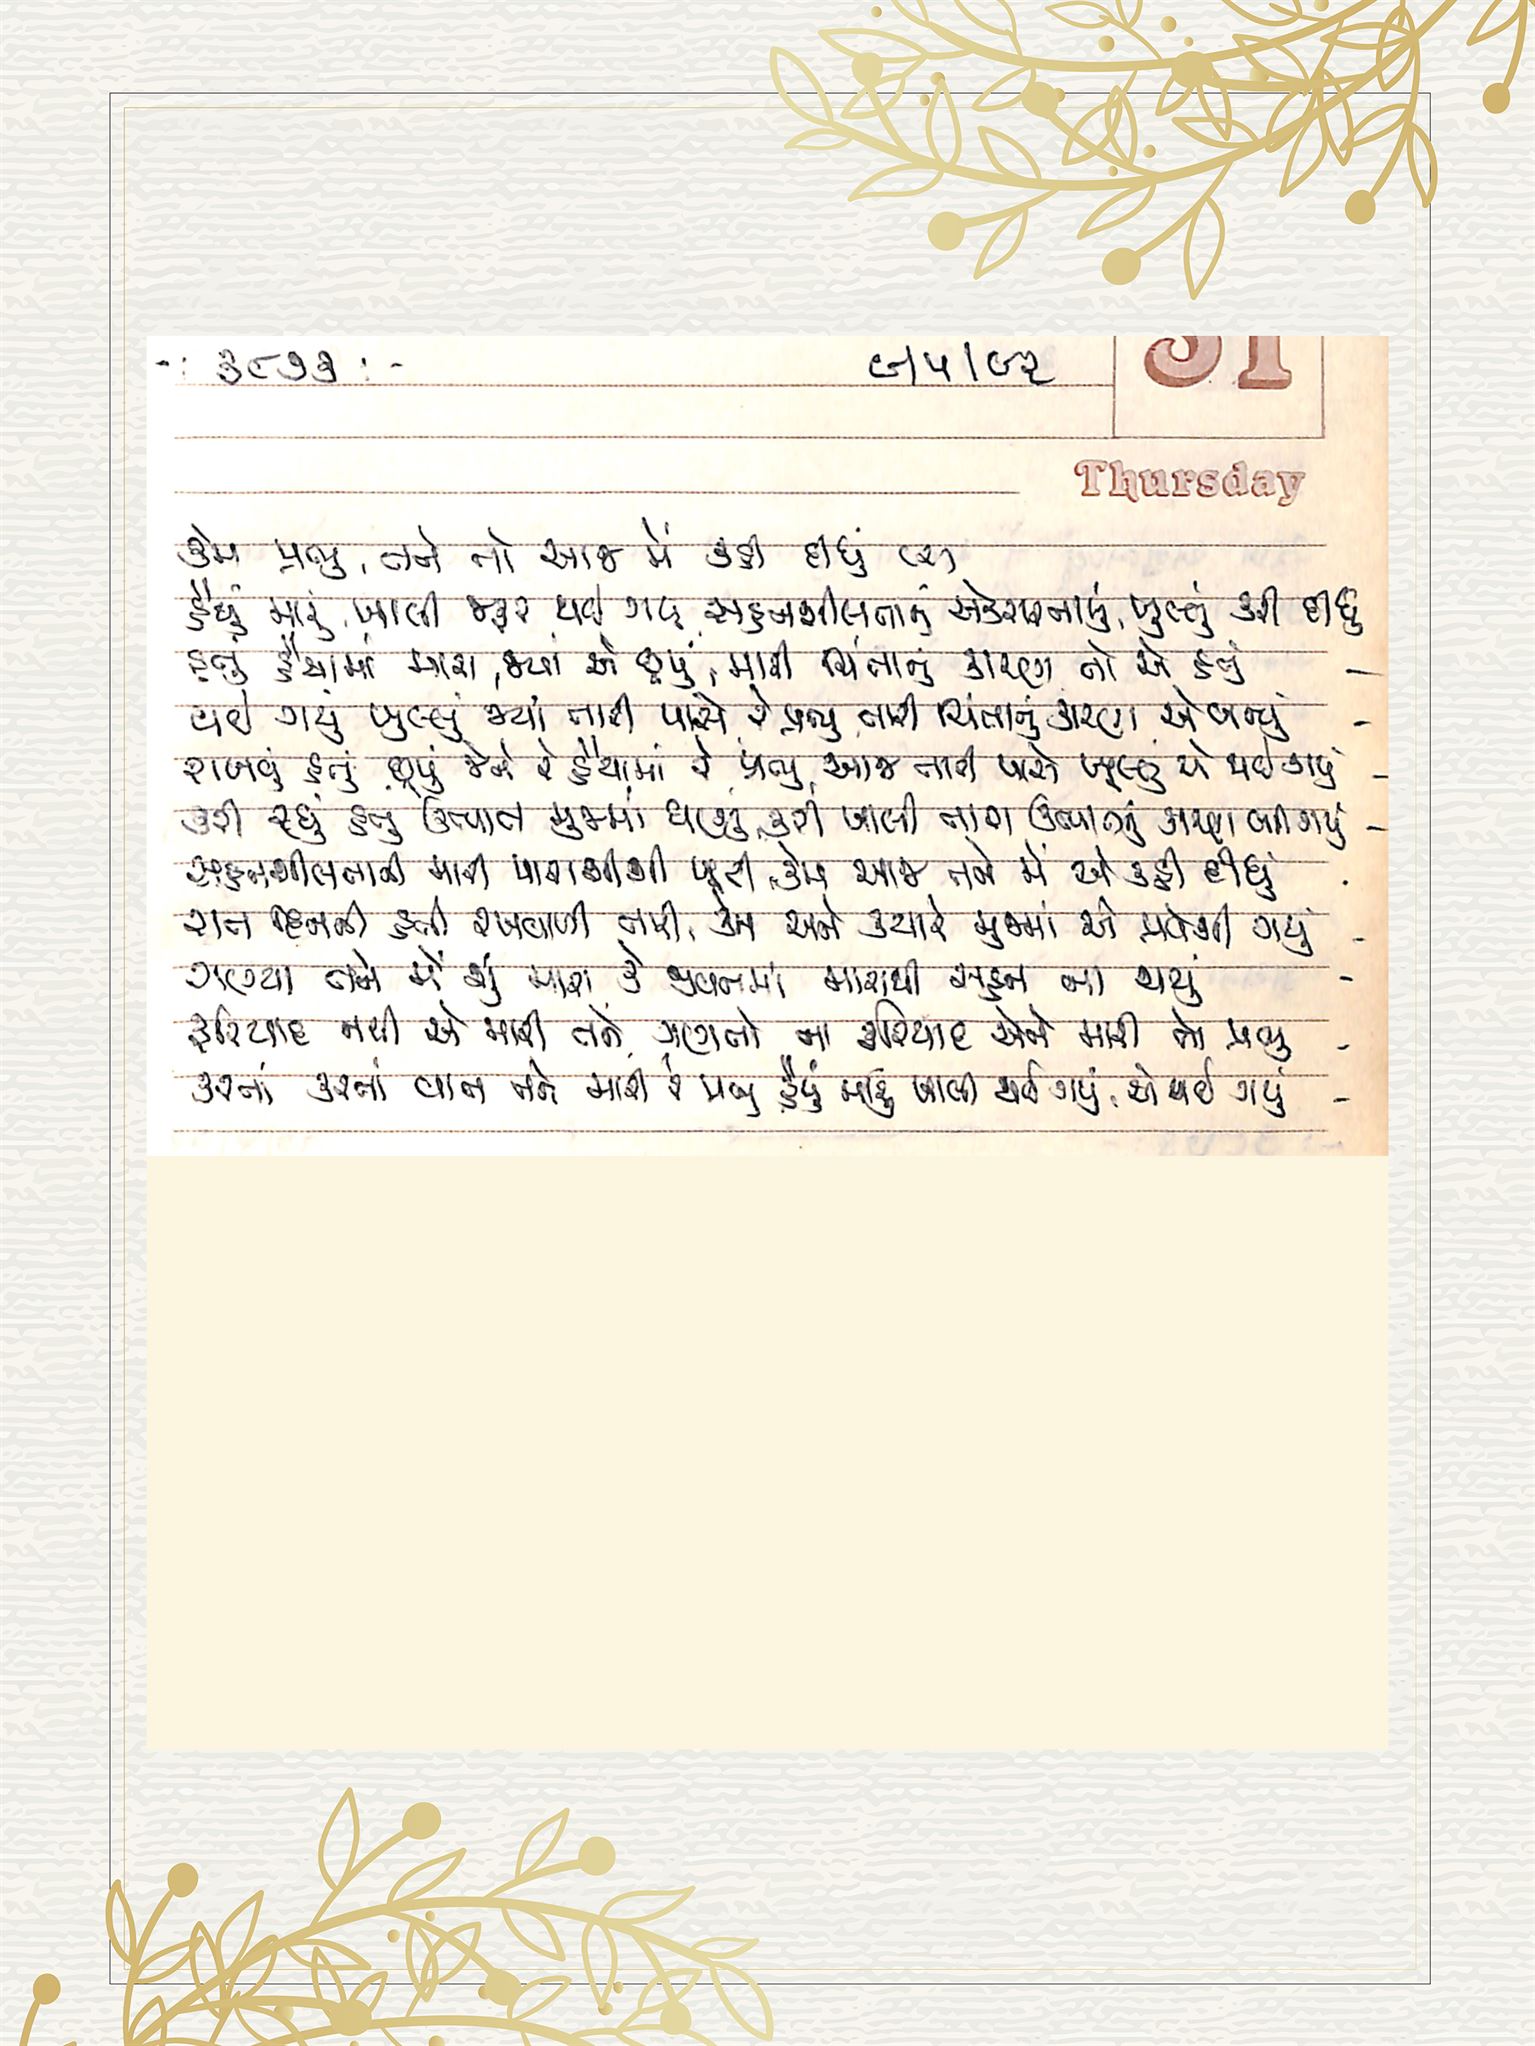 -: ૩૮૭૩ :- ૯/૫/૯૨
31
Thursday
કેમ પ્રભુ, તને તો આજ મેં કહી દીધું (૨)
હૈયું મારું, ખાલી જરૂર થઈ ગયું, સહનશીલતાનું એકરારનામું, ખુલ્લું કરી દીધું
હતું હૈયામાં મારા, જ્યાં એ છૂપું, મારી ચિંતાનું કારણ તો એ હતું -
થઈ ગયું ખુલ્લું જ્યાં તારી પાસે રે પ્રભુ, તારી ચિંતાનું કારણ એ બન્યું -
રાખવું હતું છૂપું જેને રે હૈયામાં રે પ્રભુ, આજ તારી પાસે ખુલ્લું એ થઈ ગયું -
કરી રહ્યું હતું ઉત્પાત મુજમાં ઘણું, કરી ખાલી તારા ઉત્પાતનું કારણ બની ગયું -
સહનશીલતાની મારી પારાશીશી ખૂટી, કેમ આજ તને મેં એ કહી દીધું .
રાત દિનની હતી રખવાળી તારી, કેમ અને ક્યારે મુજમાં એ પ્રવેશી ગયું -
ગણ્યા તને મેં શું મારા કે જીવનમાં મારાથી સહન ના થયું -
ફરિયાદ નથી એ મારી તને, ગણતો ના ફરિયાદ એને મારી તો પ્રભુ -
કરતાં કરતાં વાત તને મારી રે પ્રભુ હૈયું મારું ખાલી થઈ ગયું, એ થઈ ગયું -